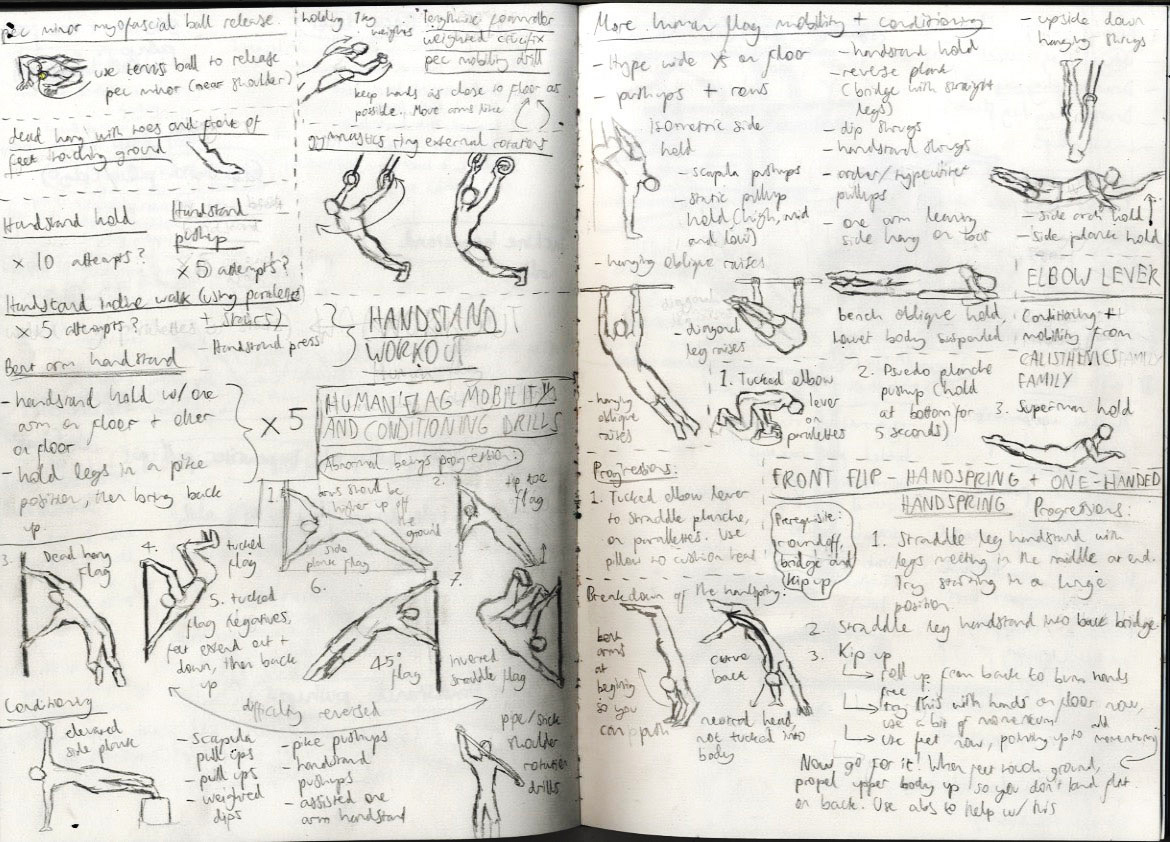 pec minor myofascial ball release.
use tennis ball to release
pec minor (near shoulder)
holding
weights
weighted crucifix
pec mobility drill
keep hands as close to floor as
possible.. Move arms like
dead hang with toes and front of
feet touching ground
gymnastics ring external rotations
Handstand hold
x 10 attempts?
Handstand
pushup
x 5 attempts?
Handstand incline walk (using parallettes)
x 5 attempts?
+ statics)
- Handstand press
HANDSTAND
WORKOUT
Bent arm handstand
- handstand hold w/ one
arm on floor + other
on floor
- hold legs in a pike
position, then bring back
up.
x 5
HUMAN FLAG MOBILITY
AND CONDITIONING DRILLS
Abnormal beings progression:
1.
arms should be
higher up off
the
ground
side
plank flag
2.
tip toe
flag
3.
Dead hang
flag
4.
tucked
flag
5. tucked
flag negatives,
feet extend out +
down, then back
up
6.
45°
flag
7.
inverted
straddle flag
difficulty reversed
Conditioning
elevated
side plank
- scapula
pull ups
- pull ups
- weighted
dips
- pike pushups
- handstand
pushups
- assisted one
arm handstand
pipe/stick
shoulder
rotation
drills
More human flag mobility + conditioning
- Hype wide on floor
- pushups + rows
isometric side
held
- scapula pushups
- static pullup
hold (high, mid
and low)
- hanging oblique raises
- handstand hold
- reverse plank
(bridge with straight
legs)
- dip shrugs
- handstand shrugs
- archer/typewriter
pullups
- one arm leaning
side hang on toes
- upside down
hanging shrugs
- side arch hold
- side plank hold
- hanging
oblique
raises
- diagonal
leg raises
bench oblique hold,
lower body suspended
ELBOW LEVER
Conditioning +
mobility from
CALISTHENICS FAMILY
FAMILY
1. Tucked elbow
lever
on
parallettes
2. Psuedo planche
pushup (hold
at bottom for
5 seconds)
3. Superman hold
Progressions:
1. Tucked elbow lever
to straddle planche,
on parallettes. Use
pillow to cushion head
FRONT FLIP - HANDSPRING + ONE-HANDED
HANDSPRING
Prerequisite:
roundoff,
bridge and
kip up
Progressions:
1. Straddle leg handstand with
legs meeting in the middle at end.
Try starting in a lunge
position.
2. Straddle leg handstand into back bridge.
3. Kip up
roll up from back to bum hands
free
try this with hands on floor now,
use a bit of momentum
use feet now, pointing up to add momentum
Now go for it! When feet touch ground,
propel upper body up so you don't land flat
on back. Use abs to help w/ this
Breakdown of the handspring:
bent
arms
at
begining
so you
can push
curve
back
neutral head,
not tucked into
body